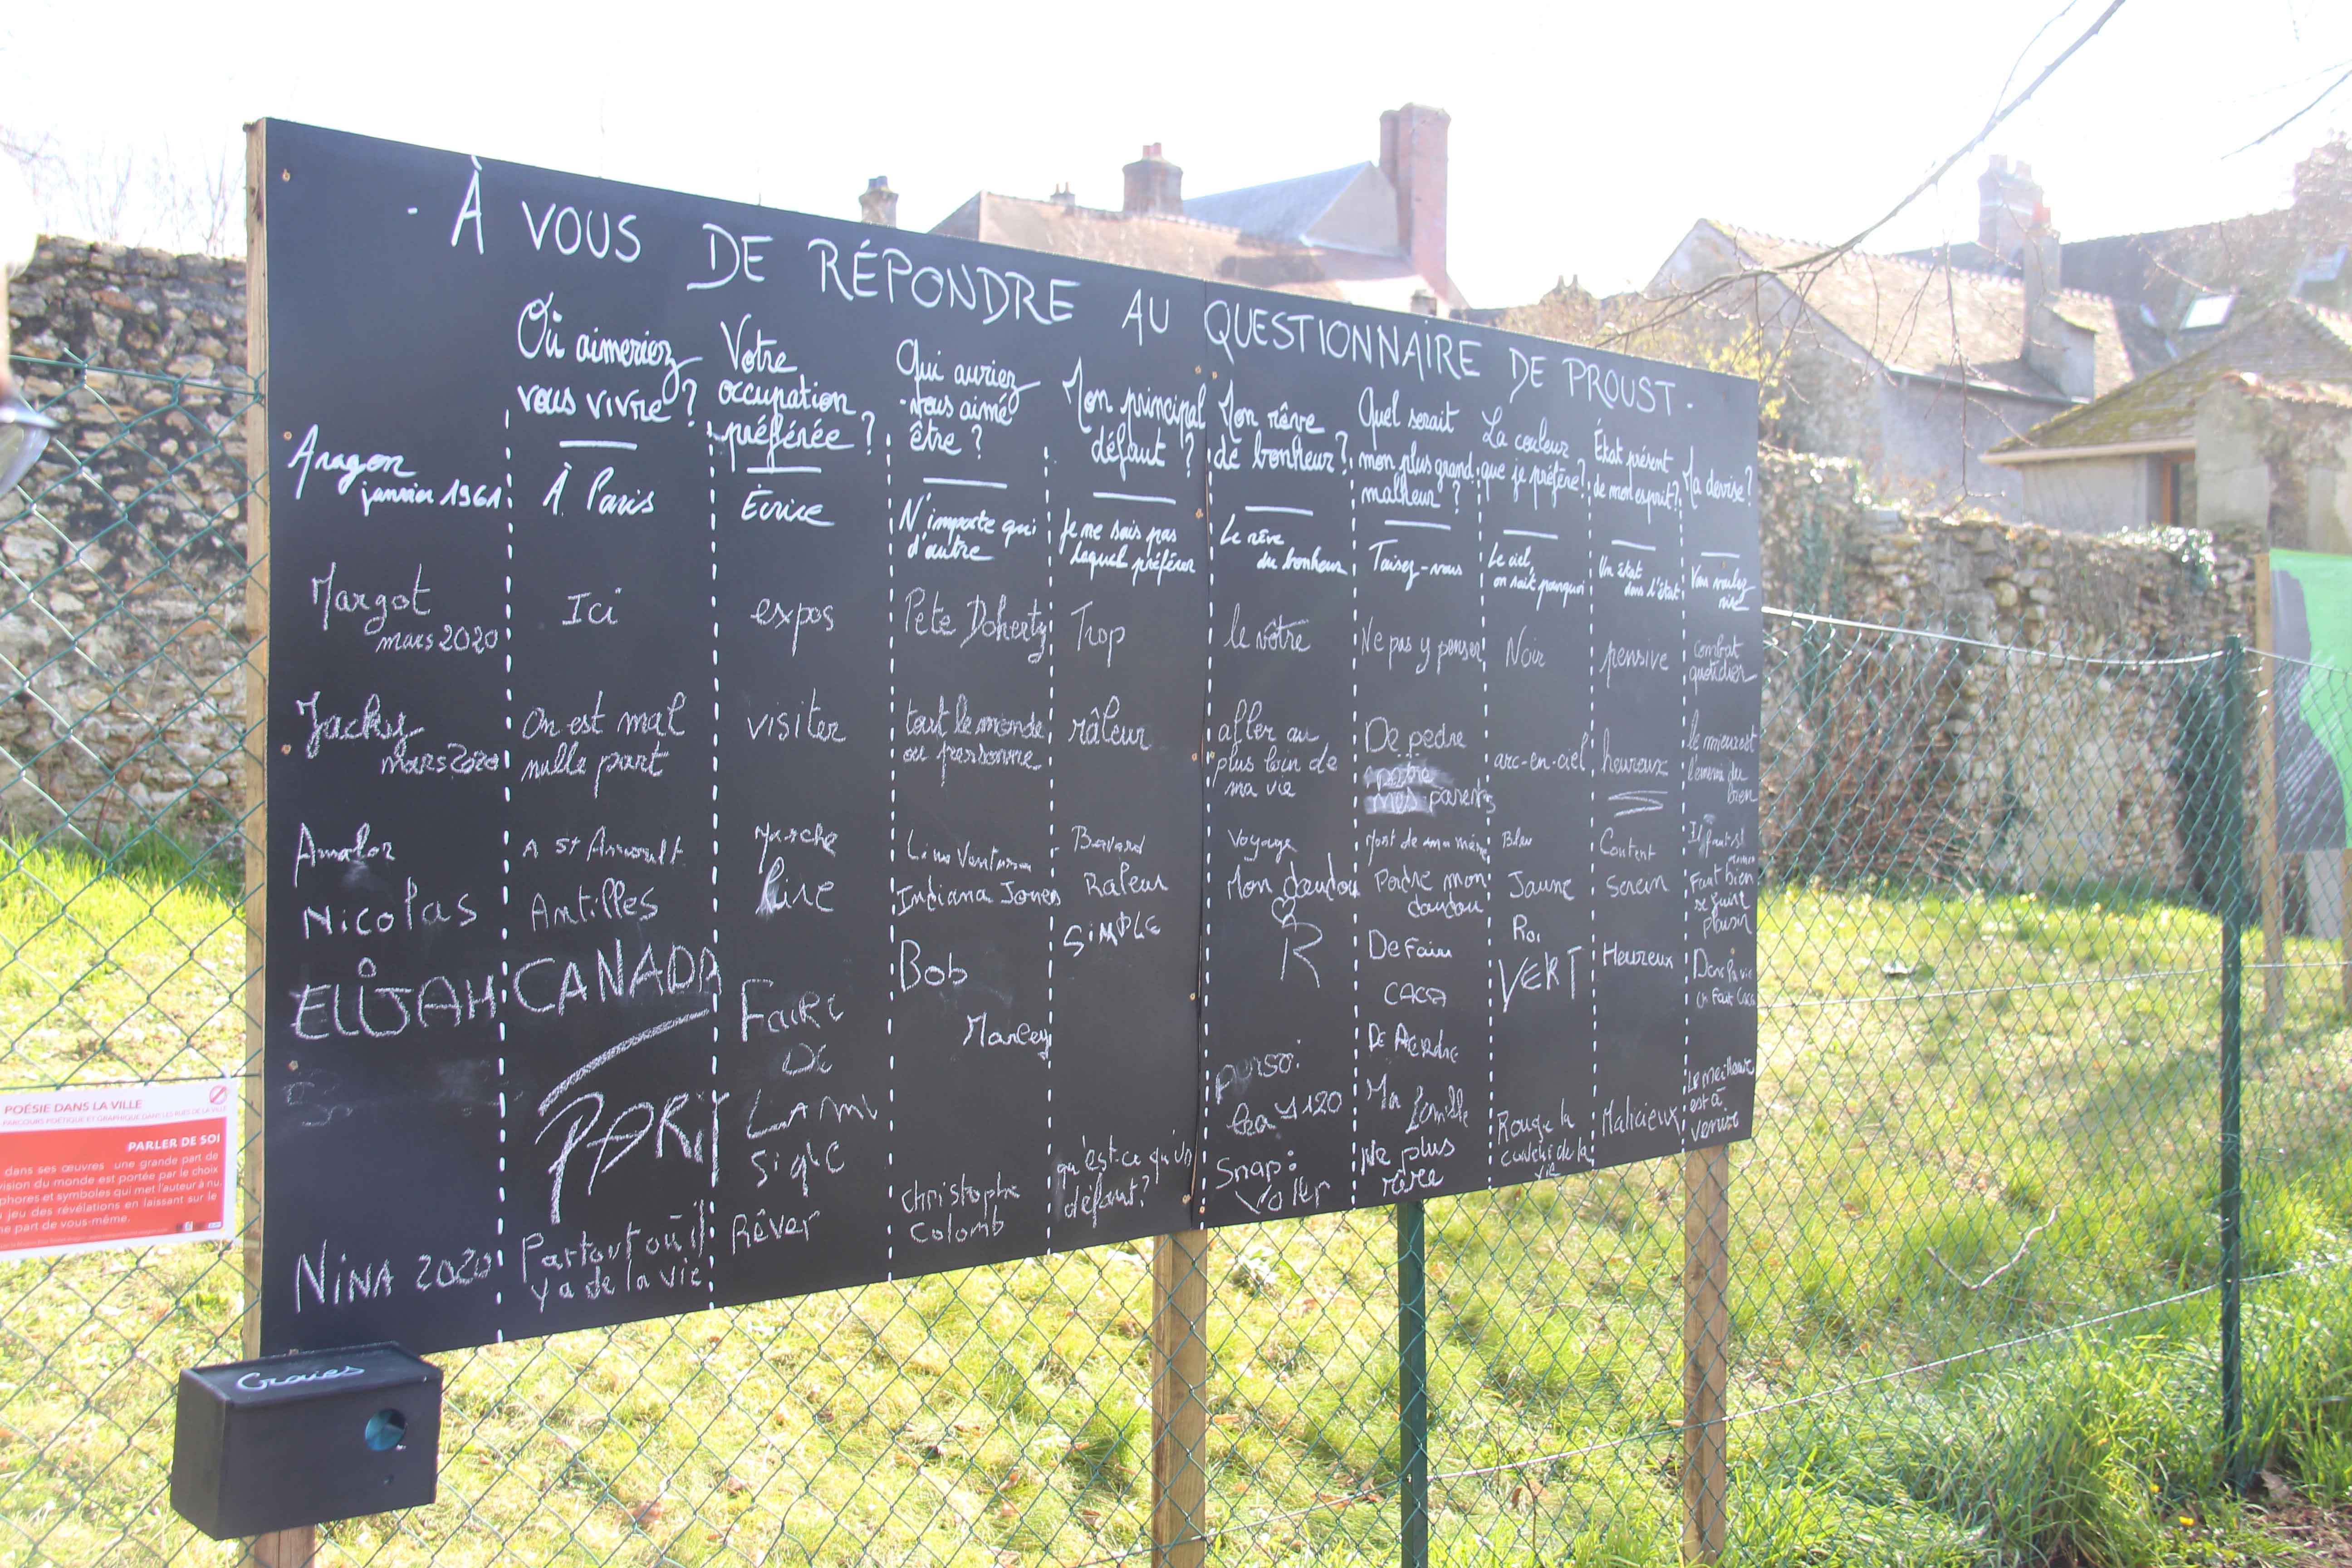 - À VOUS DE RÉPONDRE AU QUESTIONNAIRE DE PROUST -
Où aimeriez
vous vivre ?
Votre
occupation
préférée ?
Qui auriez
-vous aimé
être ?
Mon principal
défaut ?
Mon rêve
de bonheur ?
Quel serait
mon plus grand
malheur ?
La couleur
que je préfère ?
État présent
de mon esprit ?
Ma devise ?
Aragon
janvier 1961
À Paris
Écrire
N'importe qui
d'autre
Je ne sais pas
lequel préférer
Le rêve
du bonheur
Taisez-vous
Le ciel,
on sait pourquoi
Un état
dans l'état
Vous voulez
rire
Margot
mars 2020
Ici
expos
Pete Doherty
Trop
le vôtre
Ne pas y penser
Noir
pensive
combat
quotidien
Jacky
mars 2020
On est mal
nulle part
visiter
tout le monde
ou personne
râleur
aller au
plus loin de
ma vie
De pedre
mes parents
arc-en-ciel
heureux
le mieux est
l'ennemi du
bien
A St Arnoult
Marche
Lino Ventura
Bavard
Voyage
Mort de ma mère
Bleu
Content
Nicolas
Antilles
lire
Indiana Jones
Raleur
Mon doudou
Perdre mon
doudou
Jaune
Serein
Faut bien
se faire
plaisir
ELIJAH
CANADA
FAIRE
DE
LA MU
SiQUE
Bob
Marley
SiMPLE
R
De Faire
CACA
VERT
Heureux
Dans la vie
on Fait Caca
perso:
Snap:
Ma famille
Rouge la
de la
vie
Malicieux
Le meilleur
est à
venir
NiNA 2020
Partout où il
y a de la vie
Rêver
Christophe
Colomb
qu'est-ce qu'un
défaut?
Ne plus
rêver
Craies
POÉSIE DANS LA VILLE
PARCOURS POÉTIQUE ET GRAPHIQUE DANS LES RUES DE LA VILLE
PARLER DE SOI
dans ses œuvres une grande part de
vision du monde est portée par le choix
phores et symboles qui met l'auteur à nu.
jeu des révélations en laissant sur le
ne part de vous-même.